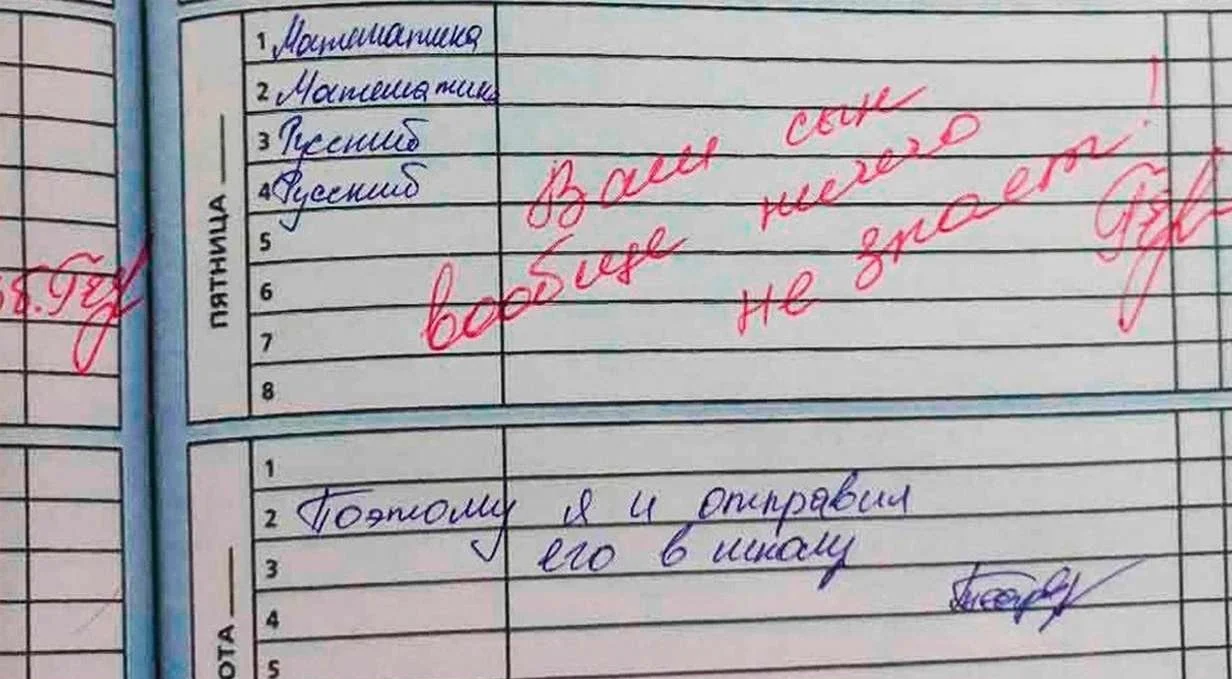 ПЯТНИЦА
1 Математика
2 Математика
3 Русский
4 Русский
5
6
7
8
Ваш сын
вообще ничего
не знает!
ОТА
1
2 Поэтому я и отправил
3 его в школу
4
5